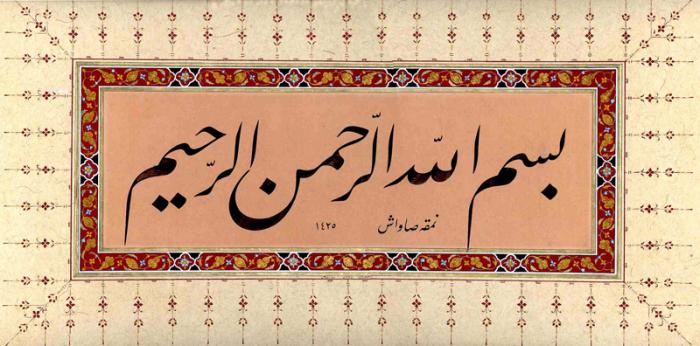 بسم الله الرحمن الرحيم
نمقه صاواش ١٤٢٥